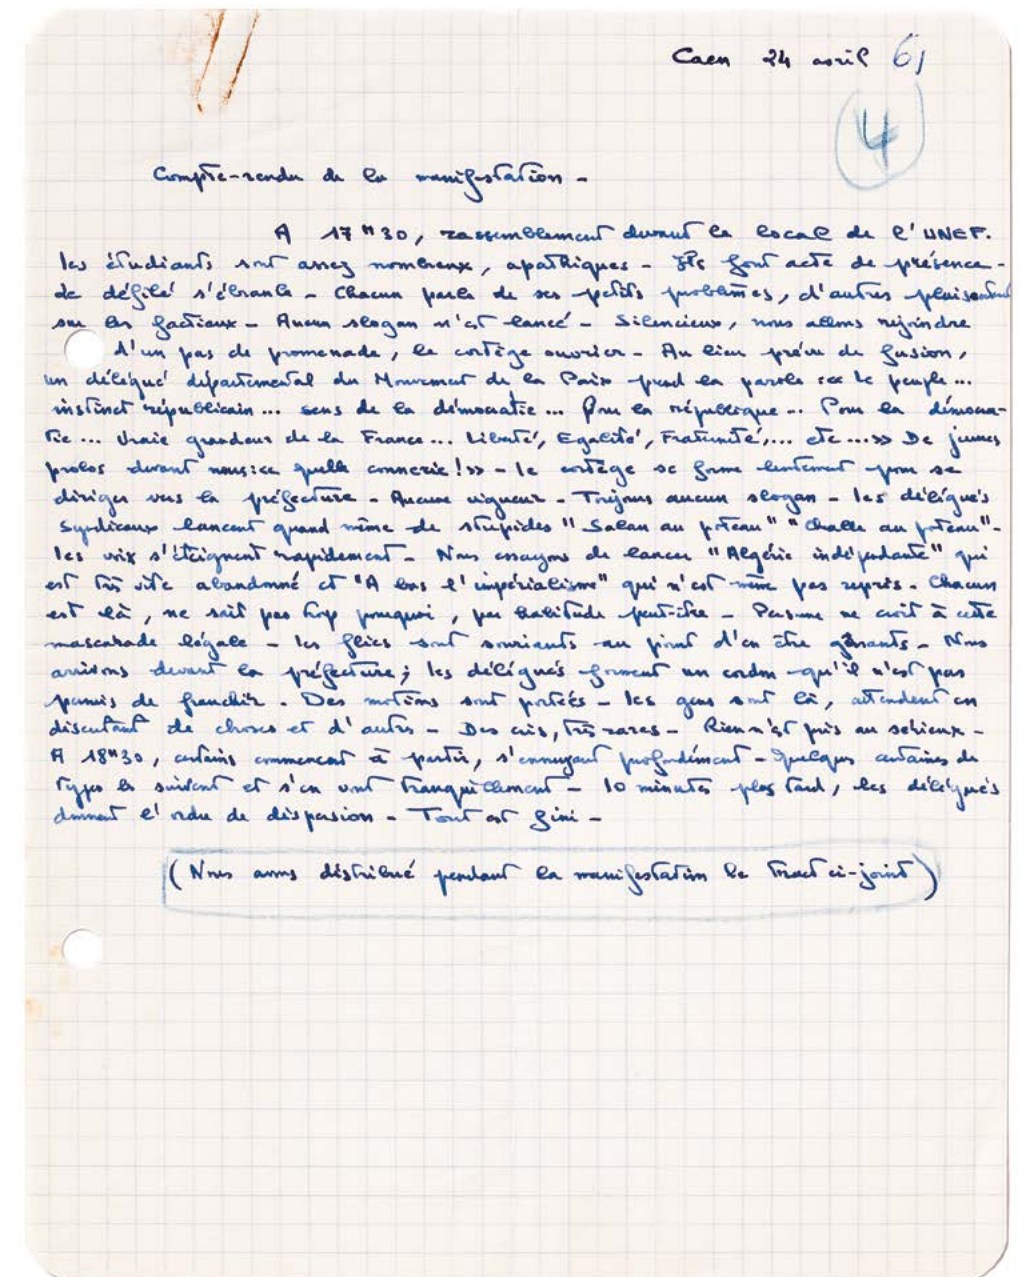 Caen 24 avril 61
4
Compte-rendu de la manifestation -
A 17H30, rassemblement devant le local de l'UNEF.
les étudiants sont assez nombreux, apathiques - Ils font acte de présence -
Le défilé s'ébranle - Chacun parle de ses petits problèmes, d'autres plaisantent
sur les factieux - Aucun slogan n'est lancé - Silencieux, nous allons rejoindre
d'un pas de promenade, le cortège ouvrier - Au lieu prévu de fusion,
un délégué départemental du Mouvement de la Paix prend la parole : << le peuple ...
instinct républicain ... sens de la démocratie ... Pour la république ... Pour la démocra-
tie ... Vraie grandeur de la France ... Liberté, Egalité, Fraternité, ... etc ... >> De jeunes
prolos devant nous : << quelle connerie ! >> - le cortège se forme lentement pour se
diriger vers la préfecture - Aucune vigueur - Toujours aucun slogan - les délégués
syndicaux lancent quand même de stupides "Salan au poteau" "Challe au poteau" -
les voix s'éteignent rapidement - Nous essayons de lancer "Algérie indépendante" qui
est très vite abandonné et "A bas l'impérialisme" qui n'est même pas repris - Chacun
est là, ne sait pas trop pourquoi, par habitude peut-être - Personne ne croit à cette
mascarade légale - les flics sont souriants au point d'en être gênants - Nous
arrivons devant la préfecture ; les délégués forment un cordon qu'il n'est pas
permis de franchir. Des motions sont portées - les gens sont là, attendent en
discutant de choses et d'autres - Des cris, très rares - Rien n'est pris au sérieux -
A 18H30, certains commencent à partir, s'ennuyant profondément - Quelques centaines de
types les suivent et s'en vont tranquillement - 10 minutes plus tard, les délégués
donnent l'ordre de dispersion - Tout est fini -
(Nous avons distribué pendant la manifestation le tract ci-joint)